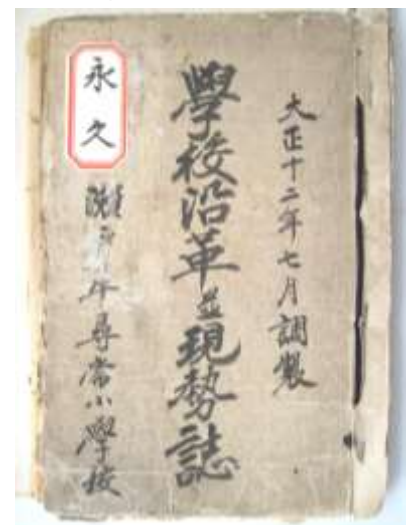 大正十二年七月調製
學校沿革並現勢誌
永久
瀬戸牛尋常小學校